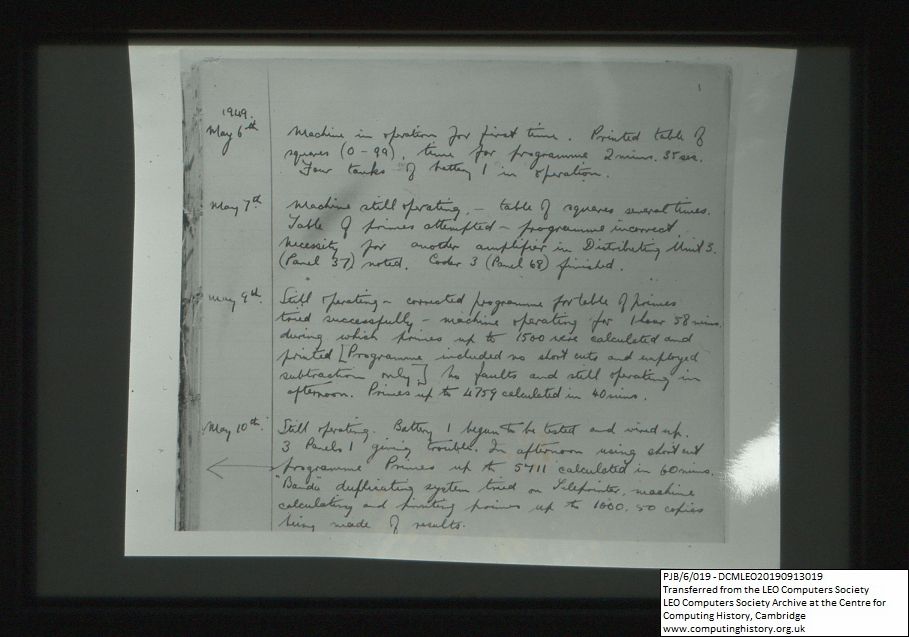 1
1949.
May 6th Machine in operation for first time. Printed table of
squares (0-99), time for programme 2 mins. 35 sec.
Four tanks of battery 1 in operation.
May 7th Machine still operating, - table of squares several times.
Table of primes attempted - programme incorrect.
Necessity for another amplifier in Distributing Unit 3.
(Panel 37) noted. Coder 3 (Panel 68) finished.
May 9th Still operating - corrected programme for table of primes
tried successfully - machine operating for 1 hour 58 mins.
during which primes up to 1500 were calculated and
printed [Programme included no short cuts and employed
subtraction only] No faults and still operating in
afternoon. Primes up to 4759 calculated in 40 mins.
May 10th Still operating. Battery 1 began to be tested and wired up.
3 Panels 1 giving trouble. In afternoon using short cut
programme Primes up to 5711 calculated in 60 mins.
"Banda" duplicating system tried on Teleprinter, machine
calculating and printing primes up to 1000. 50 copies
being made of results.
PJB/6/019 - DCMLEO20190913019
Transferred from the LEO Computers Society
LEO Computers Society Archive at the Centre for
Computing History, Cambridge
www.computinghistory.org.uk